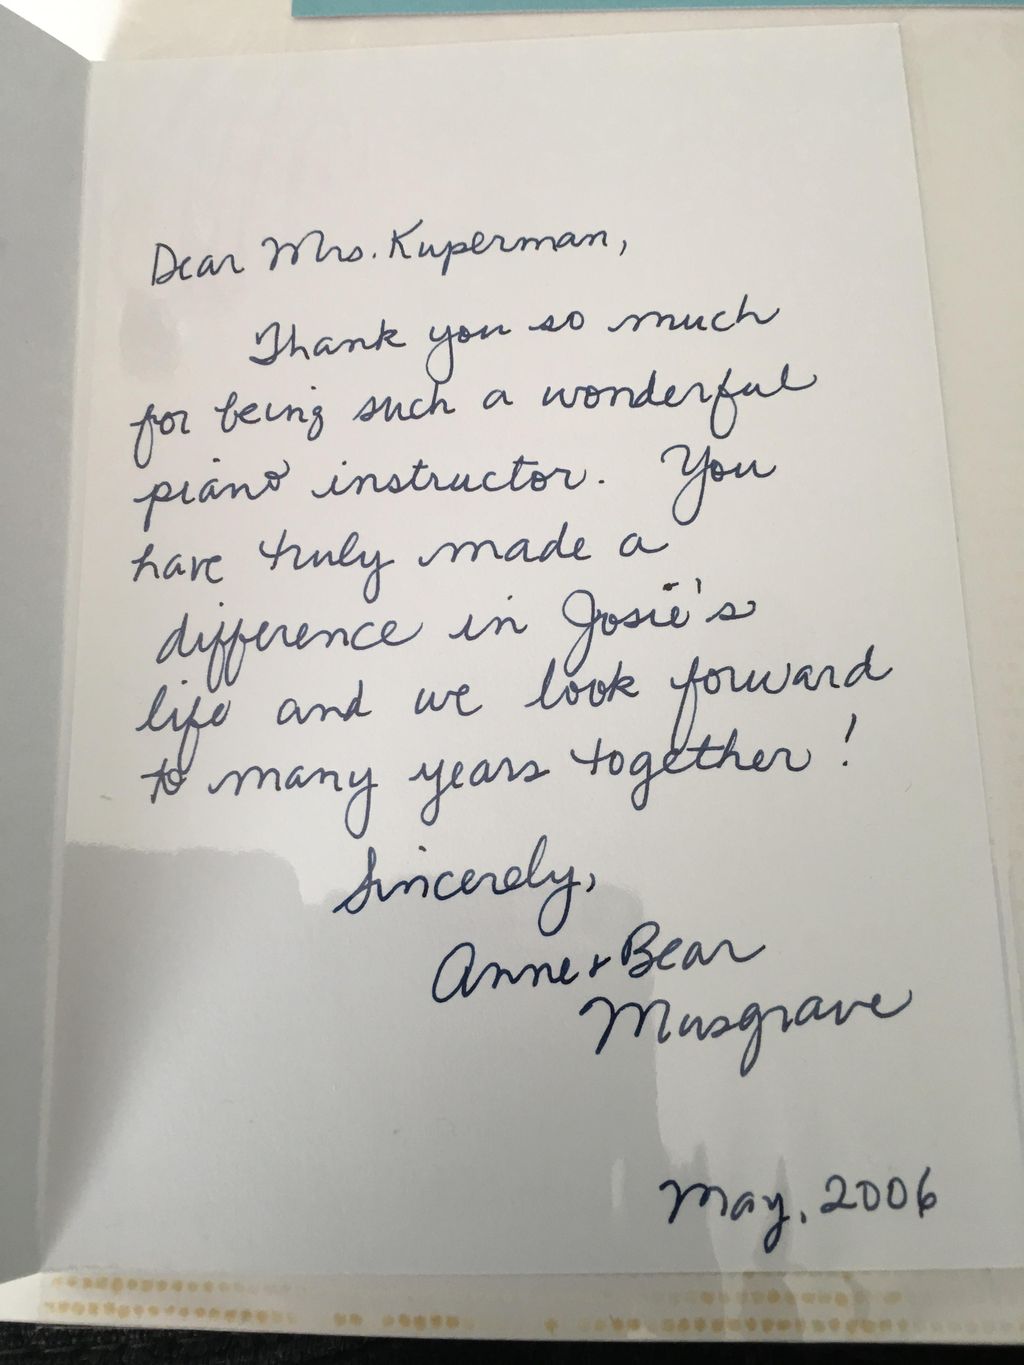 Dear Mrs. Kuperman,
Thank you so much
for being such a wonderful
piano instructor. You
have truly made a
difference in Josie's
life and we look forward
to many years together!
Sincerely,
Anne & Bear
Musgrave
May, 2006